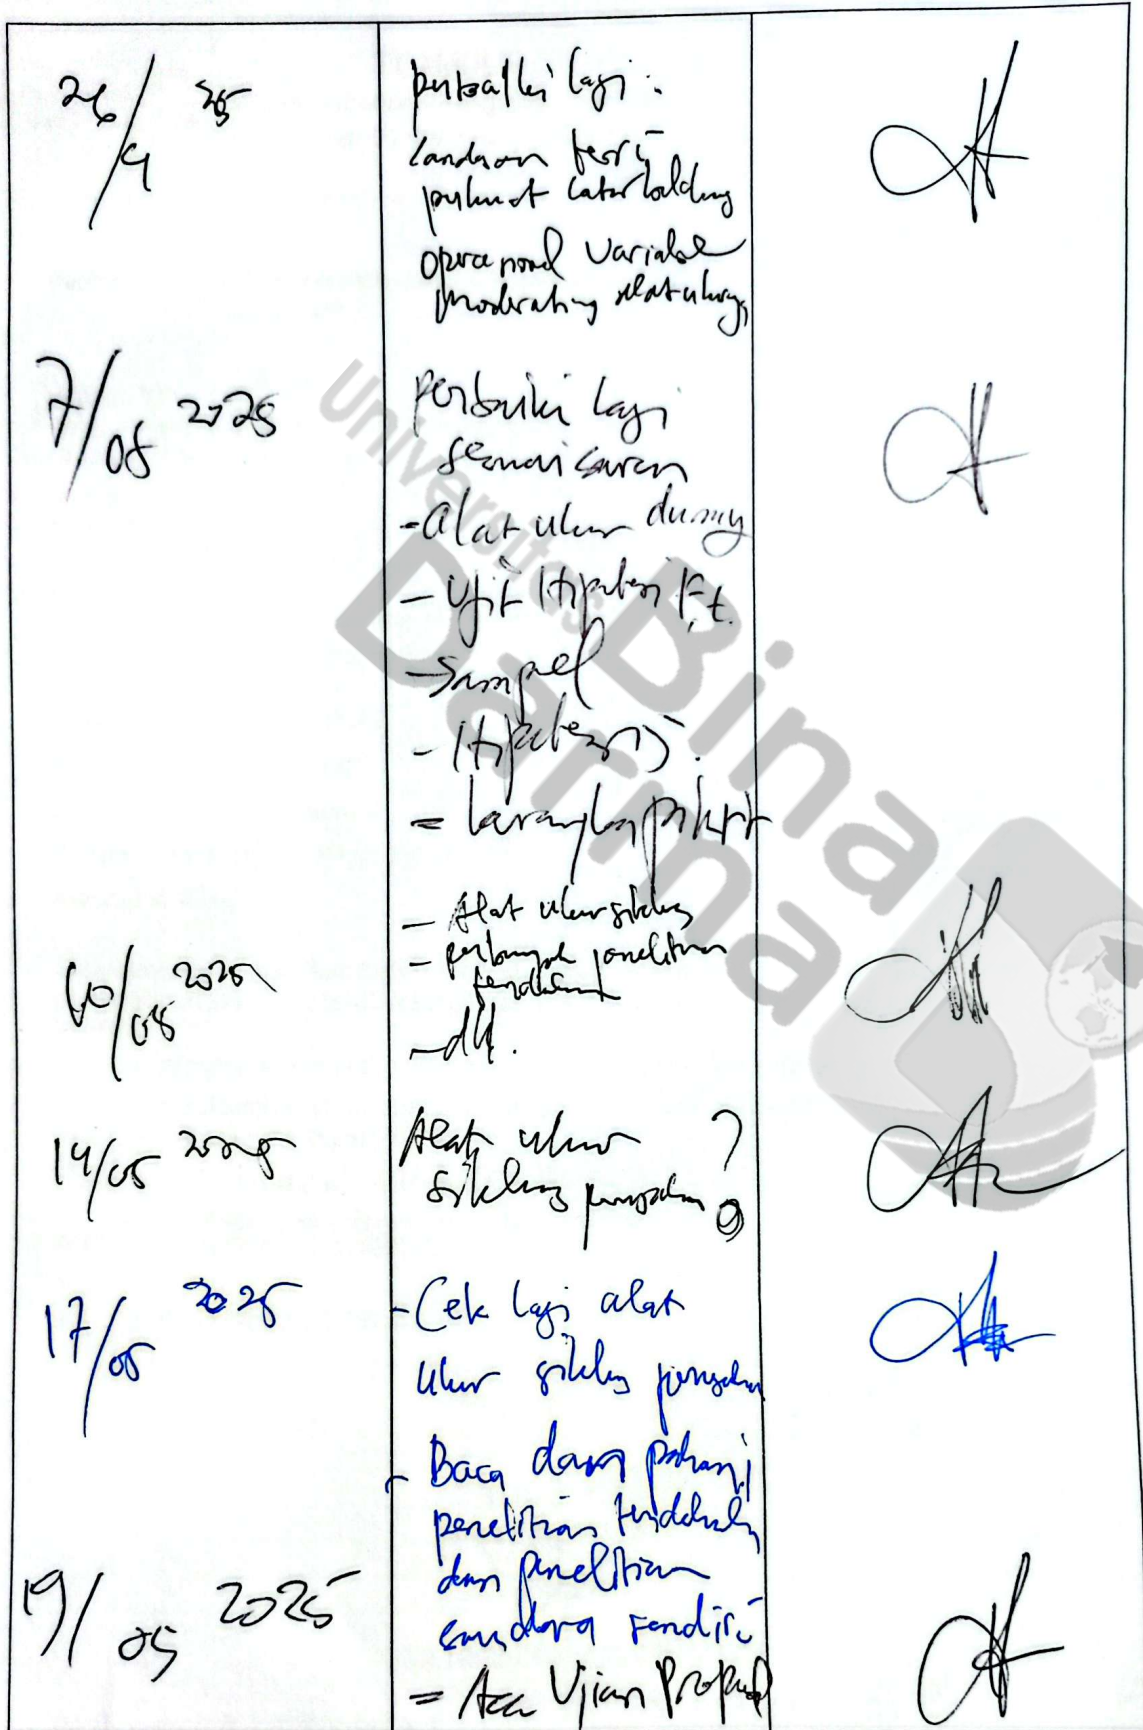 26/4 25
perbaiki lagi :
landasan teori
perkuat latar belakang
operasional variabel
moderating alat ukurnya
7/05 2025
perbaiki lagi
sesuai saran
- Alat ukur dumy
- Uji Hipotesis F, t.
- Sampel
- Hipotesis.
= kerangka pikir
- Alat ukur siklus
10/05 2025
- perbanyak penelitian
terdahulu
- dll.
14/05 2025
Alat ukur ?
siklus penjualan
17/05 2025
- Cek lagi alat
ukur siklus penjualan
- Baca dan pahami
penelitian terdahulu
dan penelitian
saudara sendiri
19/05 2025
= Acc Ujian Proposal
Universitas
Bina
Darma